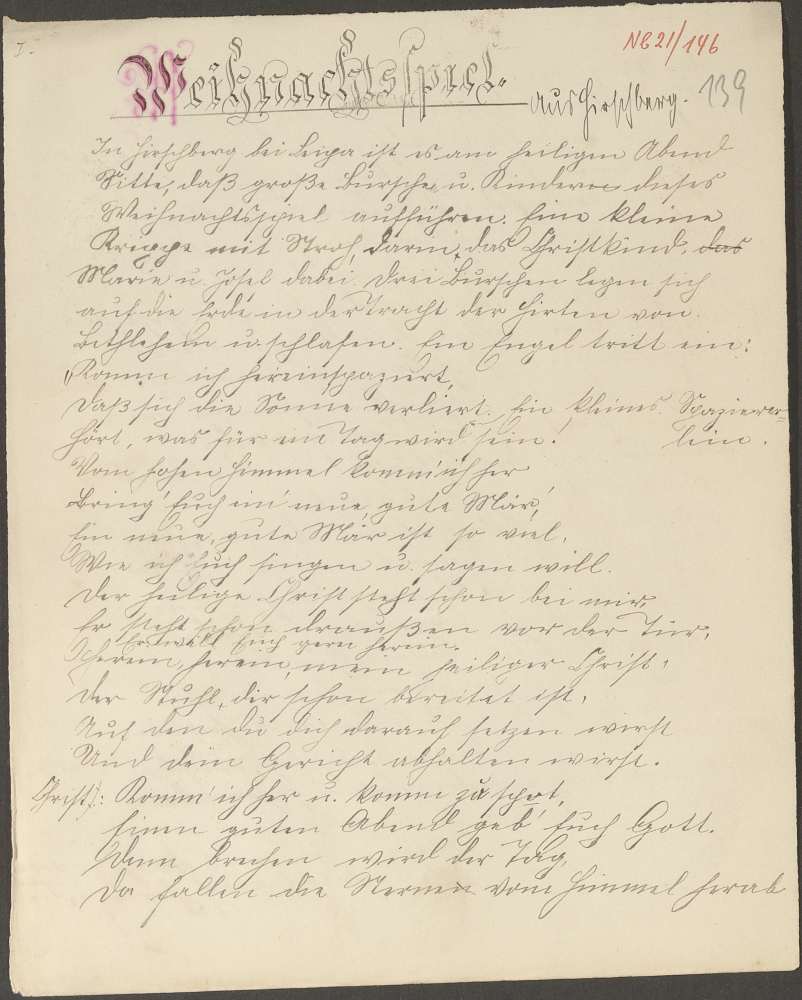 I.
NB 21/146
Weihnachtsspiel. aus Hirschberg. 139
In Hirschberg bei Leipa ist es am heiligen Abend
Sitte, daß große Bursche u. Kinder dieses
Weihnachtsspiel aufführen. Eine kleine
Krippe mit Stroh, darin das Christkind, das
Marie u. Josef dabei. Drei Burschen legen sich
auf die Erde in der Tracht der Hirten von
Bethlehem u. schlafen. Ein Engel tritt ein:
"Komm ich hereinspaziert,
Daß sich die Sonne verliert. Ein kleines Spazierer-
Hört, was für ein Tag wird sein. lein.
Vom hohen Himmel komm' ich her
Bring' Euch ein' neue, gute Mär,
Ein neue, gute Mär ist so viel,
Wie ich Euch singen u. sagen will.
Der heilige Christ steht schon bei mir,
Er steht schon draußen vor der Tür,
Er will Euch gern herein.
Herein, herein, mein heiliger Christ,
Der Stuhl, dir schon bereitet ist,
Auf den du dich darauf setzen wirst
Und dein Gericht abhalten wirst.
Christ): Komm' ich her u. komm zu spot,
Einen guten Abend geb' Euch Gott.
Denn brechen wird der Tag,
Da fallen die Sternen vom Himmel herab